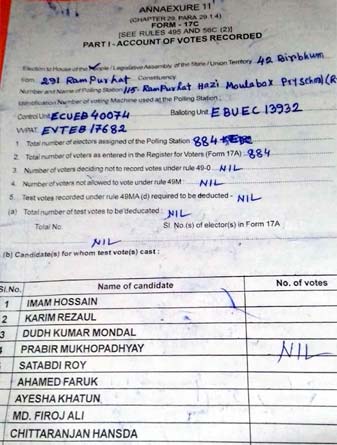 ANNAEXURE 11
(CHAPTER 29, PARA 29.1.4)
FORM - 17C
[SEE RULES 49S AND 56C (2)]
PART I - ACCOUNT OF VOTES RECORDED
Election to House of the People / Legislative Assembly of the State / Union Territory 42 Birbhum
from 291 Rampurhat Constituency
Number and Name of Polling Station 115- Rampurhat Hazi Moulabax Pry School (R
Identification Number of voting Machine used at the Polling Station :
Control Unit ECUEB 40074 Balloting Unit EBUEC 13932
VVPAT EVTEB 17682
1 Total number of electors assigned of the Polling Station 884
2. Total number of votes as entered in the Register for Voters (Form 17A) - 884
3. Number of voters deciding not to record votes under rule 49-0 NIL
4. Number of voters not allowed to vote under rule 49M : NIL
5. Test votes recorded under rule 49MA (d) required to be deducted - NIL
(a) Total number of test votes to be deducated : NIL
Total No. Sl. No.(s) of elector(s) in Form 17A
NIL
(b) Candidate(s) for whom test vote(s) cast :
Sl.No. Name of candidate No. of votes
1 IMAM HOSSAIN
2 KARIM REZAUL
3 DUDH KUMAR MONDAL
PRABIR MUKHOPADHYAY NIL
SATABDI ROY
AHAMED FARUK
AYESHA KHATUN
MD. FIROJ ALI
CHITTARANJAN HANSDA